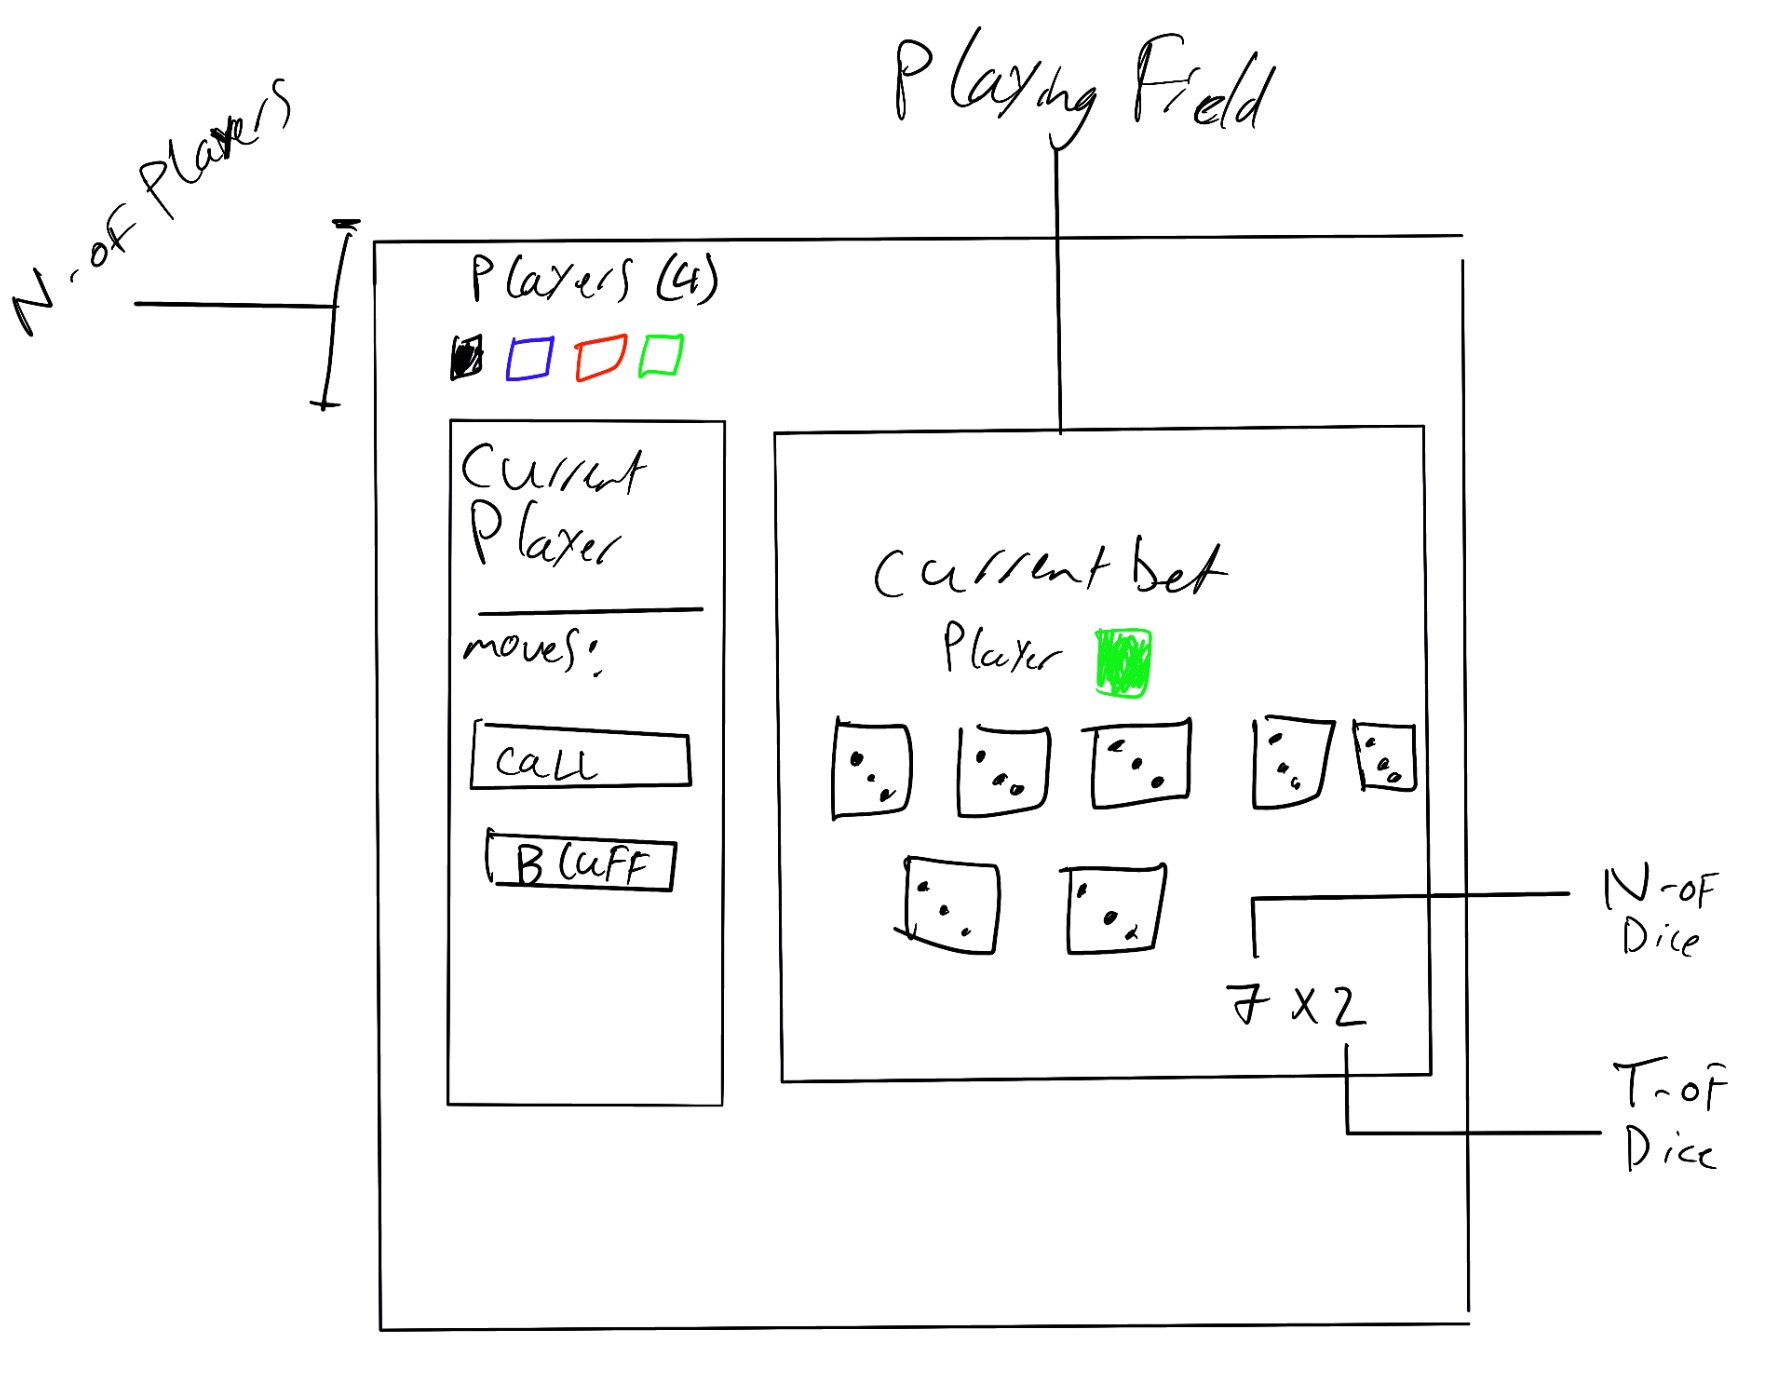 Playing Field
N-of Players
Players (4)
Current
Player
moves:
Call
Bluff
Current bet
Player
7 x 2
N-of
Dice
T-of
Dice